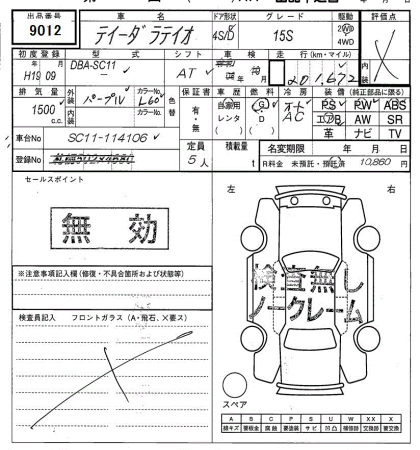 出品番号
9012
車名
ティーダ ラティオ
ドア形状
4S/D
グレード
15S
駆動
2WD
4WD
評価点
初度登録
年 月
H19 09
型式
DBA-SC11
シフト
AT
車検
年 月
走行(km・マイル)
201,672
内装
排気量
1500 c.c.
外装
パープルV
カラーNo.
L60
色替
内装
カラーNo.
保証書
有・無
車歴
自家用
レンタ
( )
燃料
G
D
( )
冷房
オート
AC
装備(純正部品に限る)
PS PW ABS
エアB AW SR
革 ナビ TV
車台No
SC11-114106
登録No
定員
5人
積載量
t
名変期限 年 月 日
R料金 未預託・預託済 10,860円
セールスポイント
無効
※注意事項記入欄(修復・不具合箇所および状態等)
検査員記入 フロントガラス(A・飛石、X要ス)
左 右
検査無し
ノークレーム
スペア
A B C P S U W XX X
線キズ 要板金 腐蝕 要塗装 サビ 凹凸 補修跡 交換跡 要交換